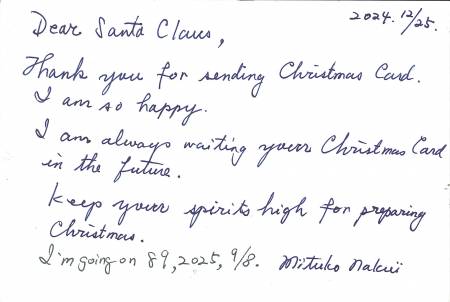 2024. 12/25.
Dear Santa Claus,
Thank you for sending Christmas Card.
I am so happy.
I am always waiting your Christmas Card
in the future.
Keep your spirits high for preparing
Christmas.
I'm going on 89, 2025, 9/8. Mituko Nakui